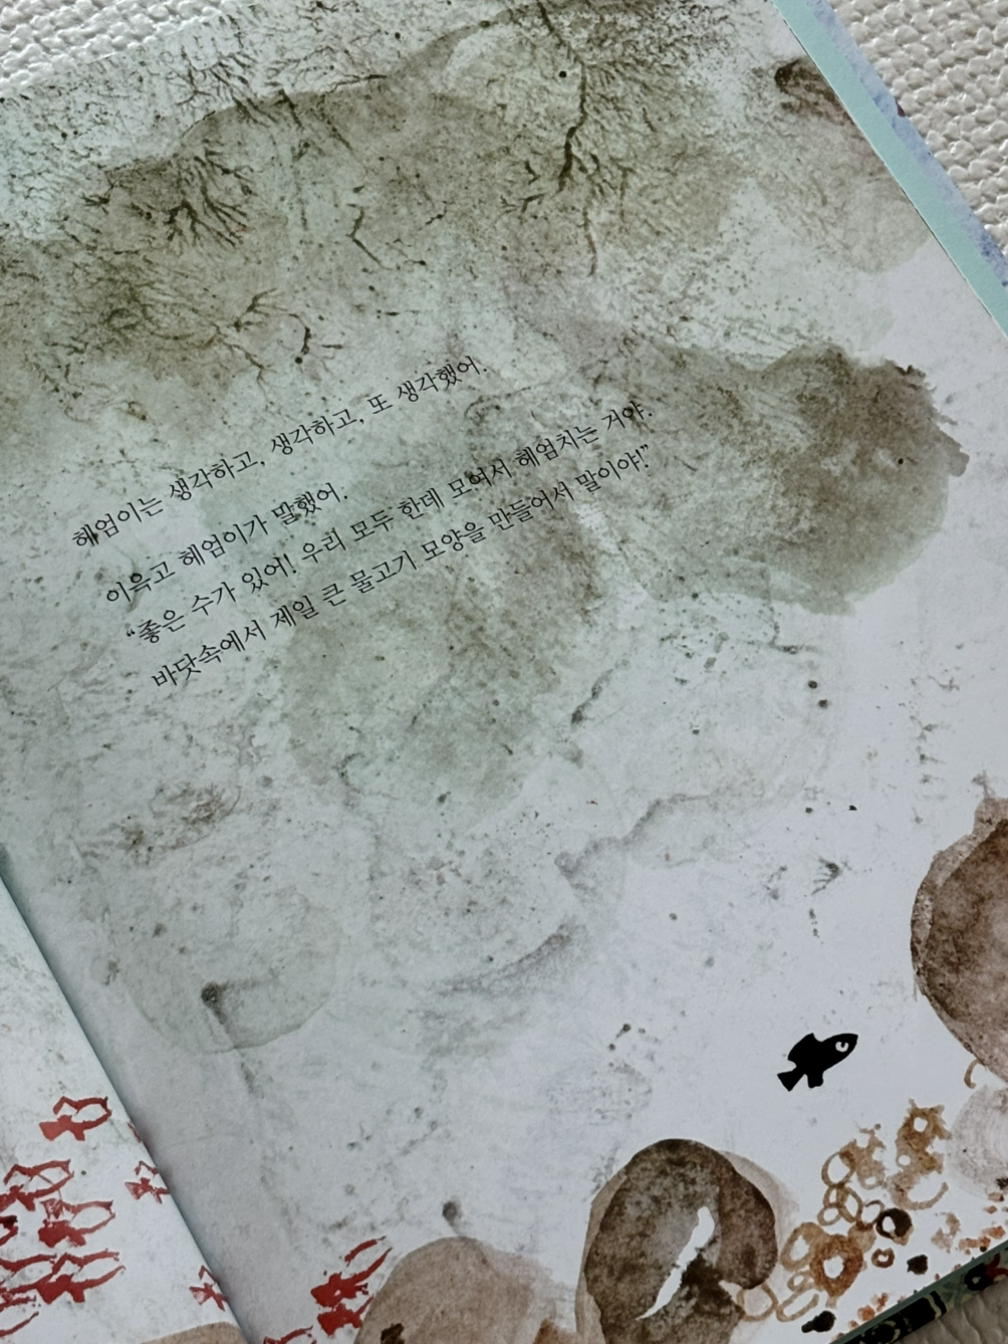 헤엄이는 생각하고, 생각하고, 또 생각했어.
이윽고 헤엄이가 말했어.
“좋은 수가 있어! 우리 모두 한데 모여서 헤엄치는 거야.
바닷속에서 제일 큰 물고기 모양을 만들어서 말이야!”